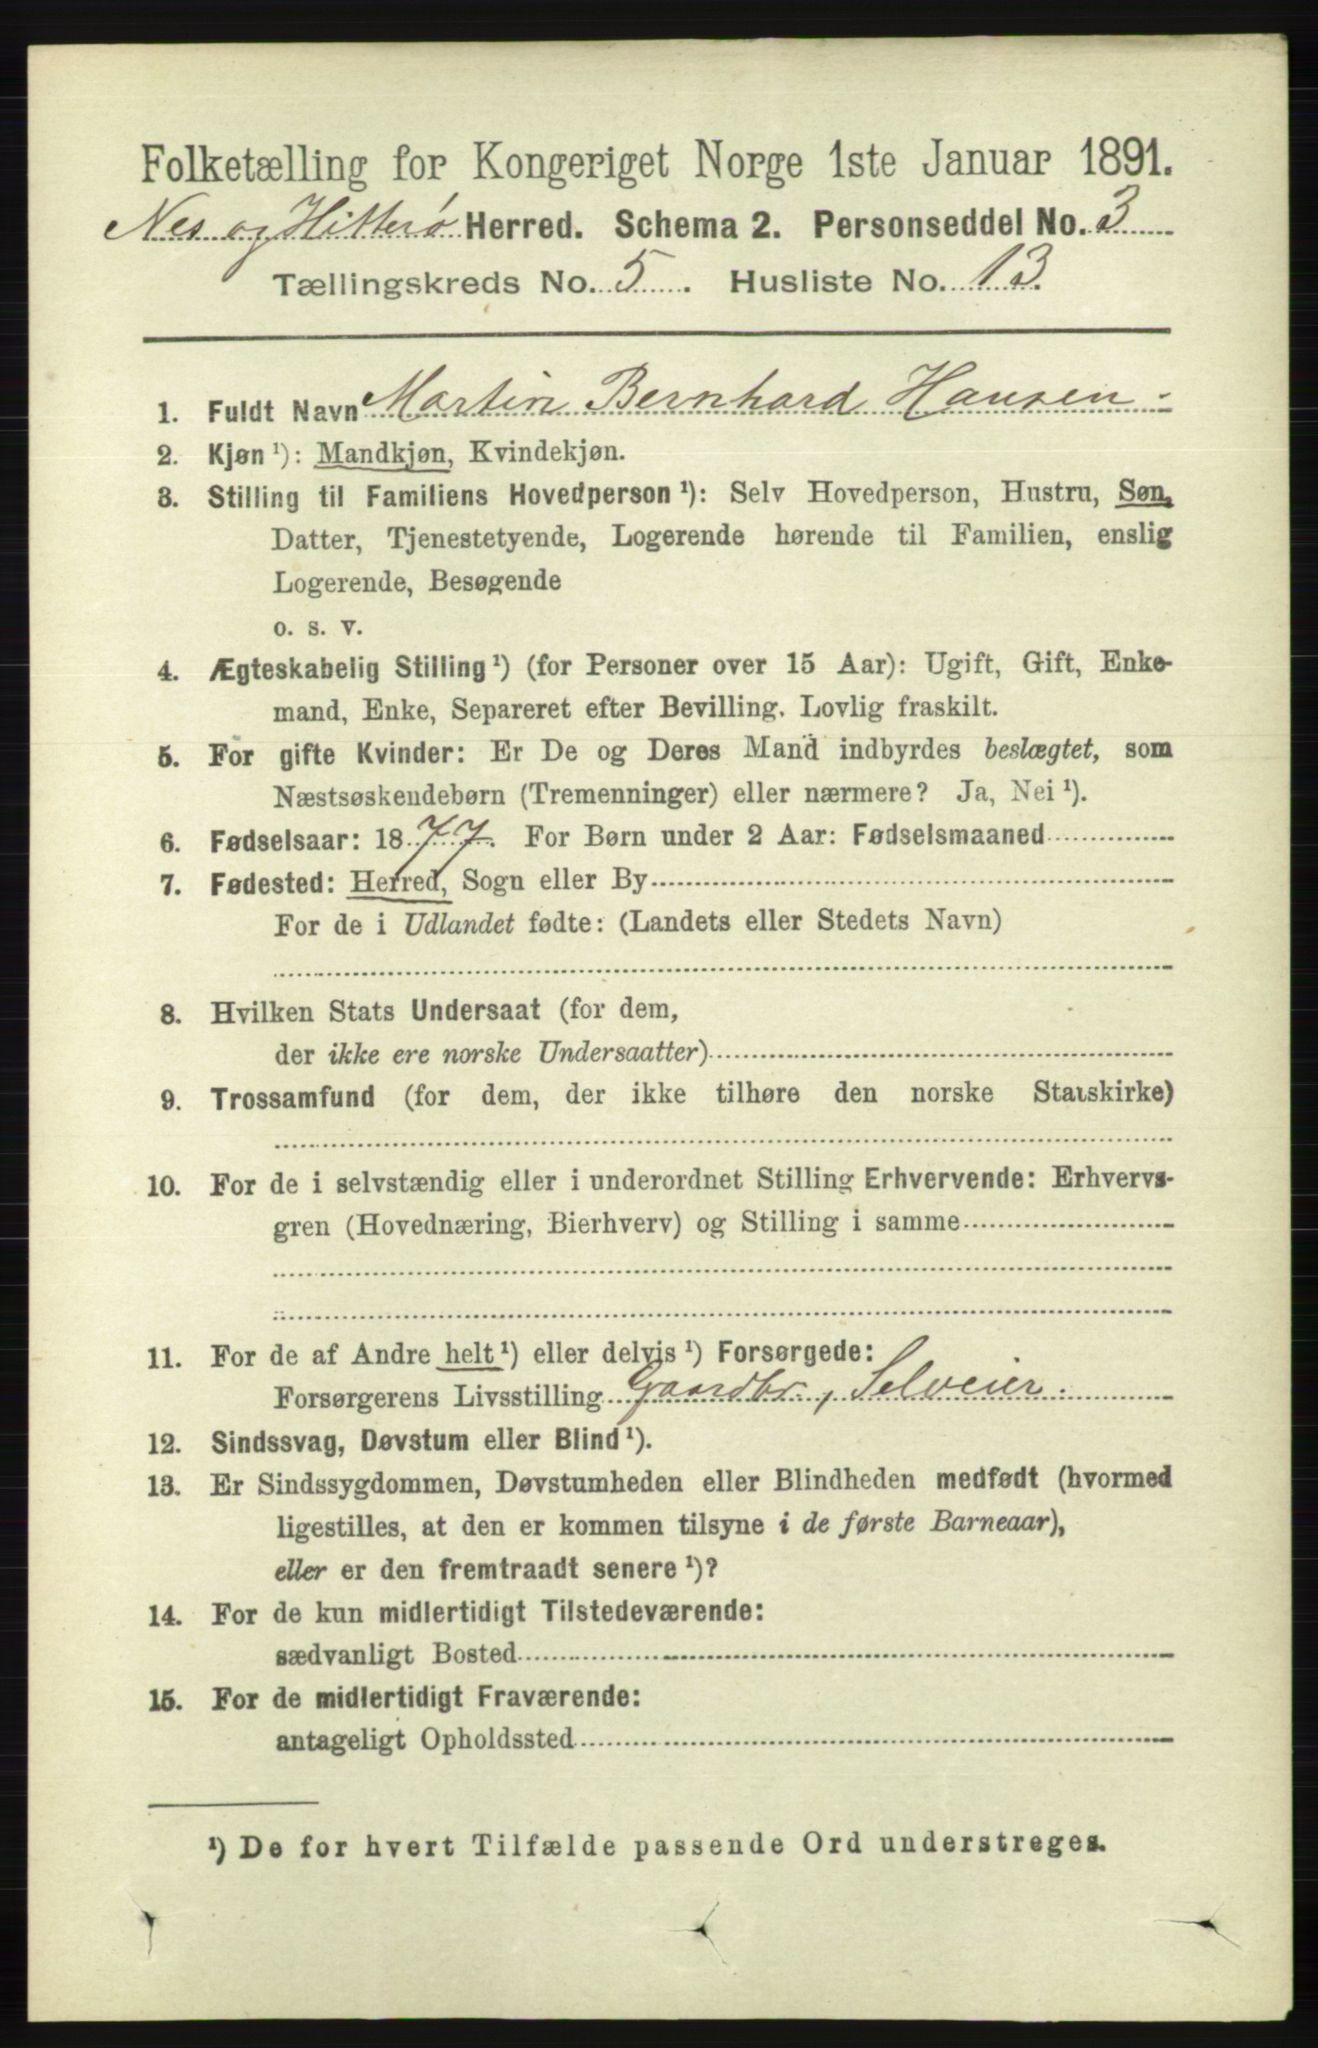 Folketælling for Kongeriget Norge 1ste Januar 1891.
Nes og Hitterø Herred. Schema 2. Personseddel No. 3
Tællingskreds No. 5. Husliste No. 13.
1. Fuldt Navn Martin Bernhard Hansen
2. Kjøn ¹): Mandkjøn, Kvindekjøn.
3. Stilling til Familiens Hovedperson ¹): Selv Hovedperson, Hustru, Søn,
Datter, Tjenestetyende, Logerende hørende til Familien, enslig
Logerende, Besøgende
o. s. v.
4. Ægteskabelig Stilling ¹) (for Personer over 15 Aar): Ugift, Gift, Enke-
mand, Enke, Separeret efter Bevilling. Lovlig fraskilt.
5. For gifte Kvinder: Er De og Deres Mand indbyrdes beslægtet, som
Næstsøskendebørn (Tremenninger) eller nærmere? Ja, Nei ¹).
6. Fødselsaar: 1877. For Børn under 2 Aar: Fødselsmaaned
7. Fødested: Herred, Sogn eller By
For de i Udlandet fødte: (Landets eller Stedets Navn)
8. Hvilken Stats Undersaat (for dem,
der ikke ere norske Undersaatter)
9. Trossamfund (for dem, der ikke tilhøre den norske Statskirke)
10. For de i selvstændig eller i underordnet Stilling Erhvervende: Erhvervs-
gren (Hovednæring, Bierhverv) og Stilling i samme
11. For de af Andre helt ¹) eller delvis ¹) Forsørgede:
Forsørgerens Livsstilling Gaardbr., Selveier.
12. Sindssvag, Døvstum eller Blind ¹).
13. Er Sindssygdommen, Døvstumheden eller Blindheden medfødt (hvormed
ligestilles, at den er kommen tilsyne i de første Barneaar),
eller er den fremtraadt senere ¹)?
14. For de kun midlertidigt Tilstedeværende:
sædvanligt Bosted
15. For de midlertidigt Fraværende:
antageligt Opholdssted
¹) De for hvert Tilfælde passende Ord understreges.